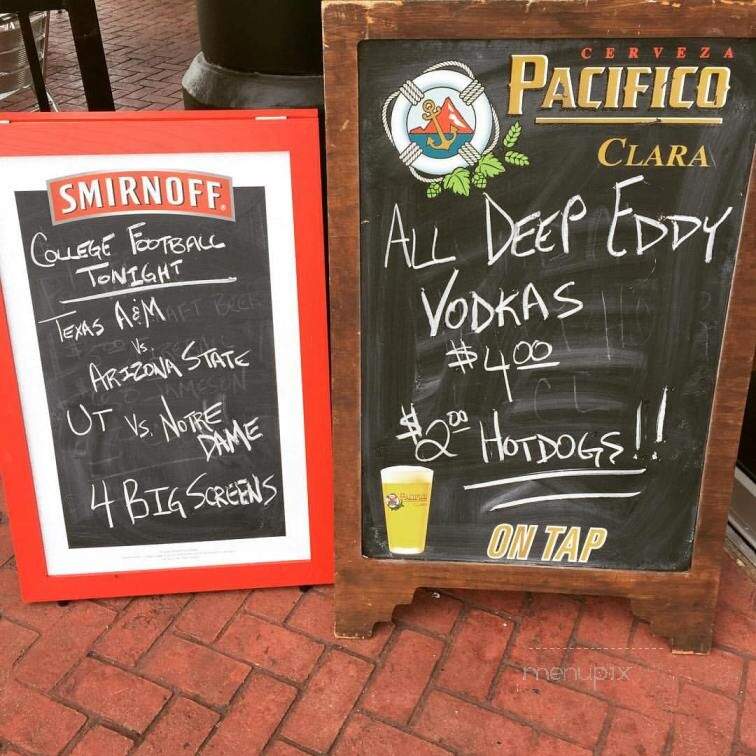 SMIRNOFF
COLLEGE FOOTBALL
TONIGHT
TEXAS A&M
Vs.
ARIZONA STATE
UT Vs. NOTRE
DAME
4 BIG SCREENS
CERVEZA
PACIFICO
CLARA
ALL DEEP EDDY
VODKAS
$4.00
$2.00 HOTDOGS!!
ON TAP
menupix